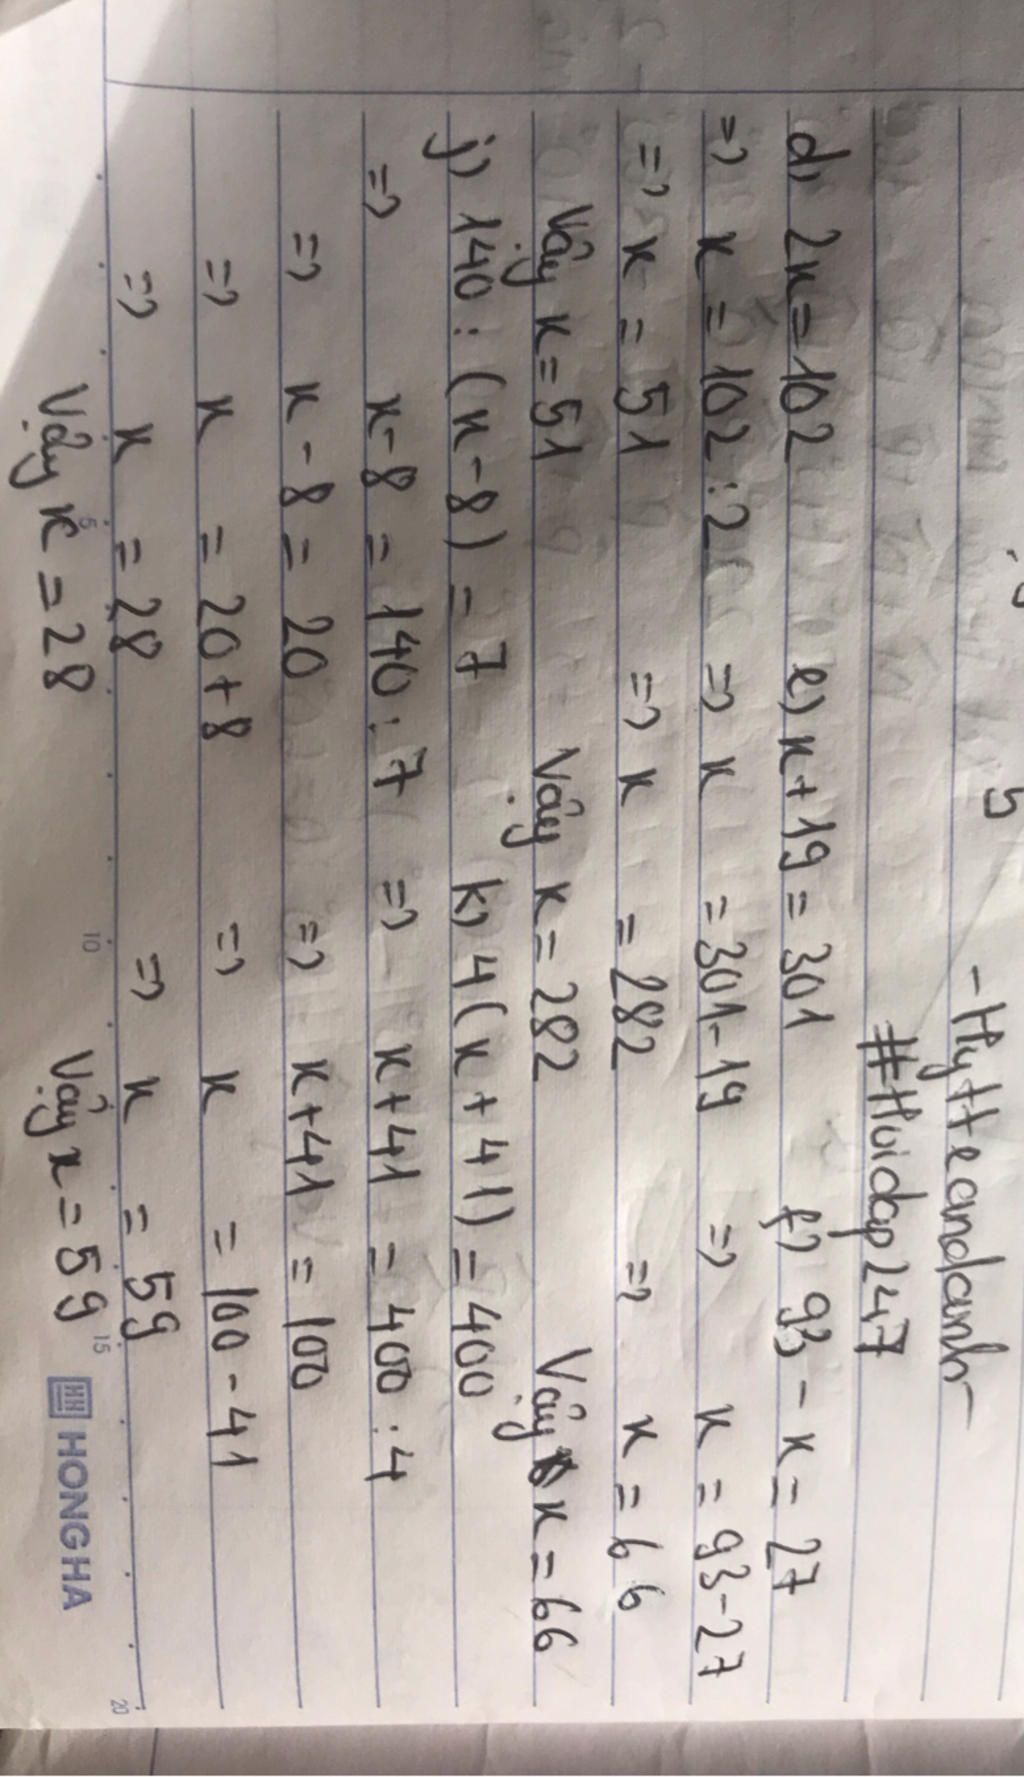 -Hytteandanh-
#Hoidap247
d, 2x = 102 e) x + 19 = 301 f) 93 - x = 27
=> x = 102 : 2 => x = 301 - 19 => x = 93 - 27
=> x = 51 => x = 282 => x = 66
Vậy x = 51 Vậy x = 282 Vậy x = 66
j) 140 : (x - 8) = 7 k) 4(x + 41) = 400
=> x - 8 = 140 : 7 => x + 41 = 400 : 4
=> x - 8 = 20 => x + 41 = 100
=> x = 20 + 8 => x = 100 - 41
=> x = 28 => x = 59
5 10 15 20
Vậy x = 28 Vậy x = 59
HH HONGHA